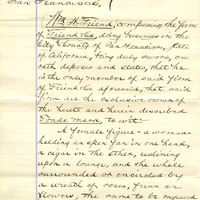 San Francisco, }
Wm H. Friend, composing the firm
of Friend & Co, doing business in the
City & County of San Francisco, State
of California, being duly sworn, on
oath deposes and states, that he
is the only member of said firm
of Friend & Co aforesaid, that said
firm are the exclusive owners of
the herein and herein described
Trade Mark, to wit:—
A female figure - a woman
holding an open fan in one hand,
a cigar in the other, reclining
upon a lounge, and the whole
surrounded or encircled by
a wreath of roses, ferns or
flowers, the same to be engraved